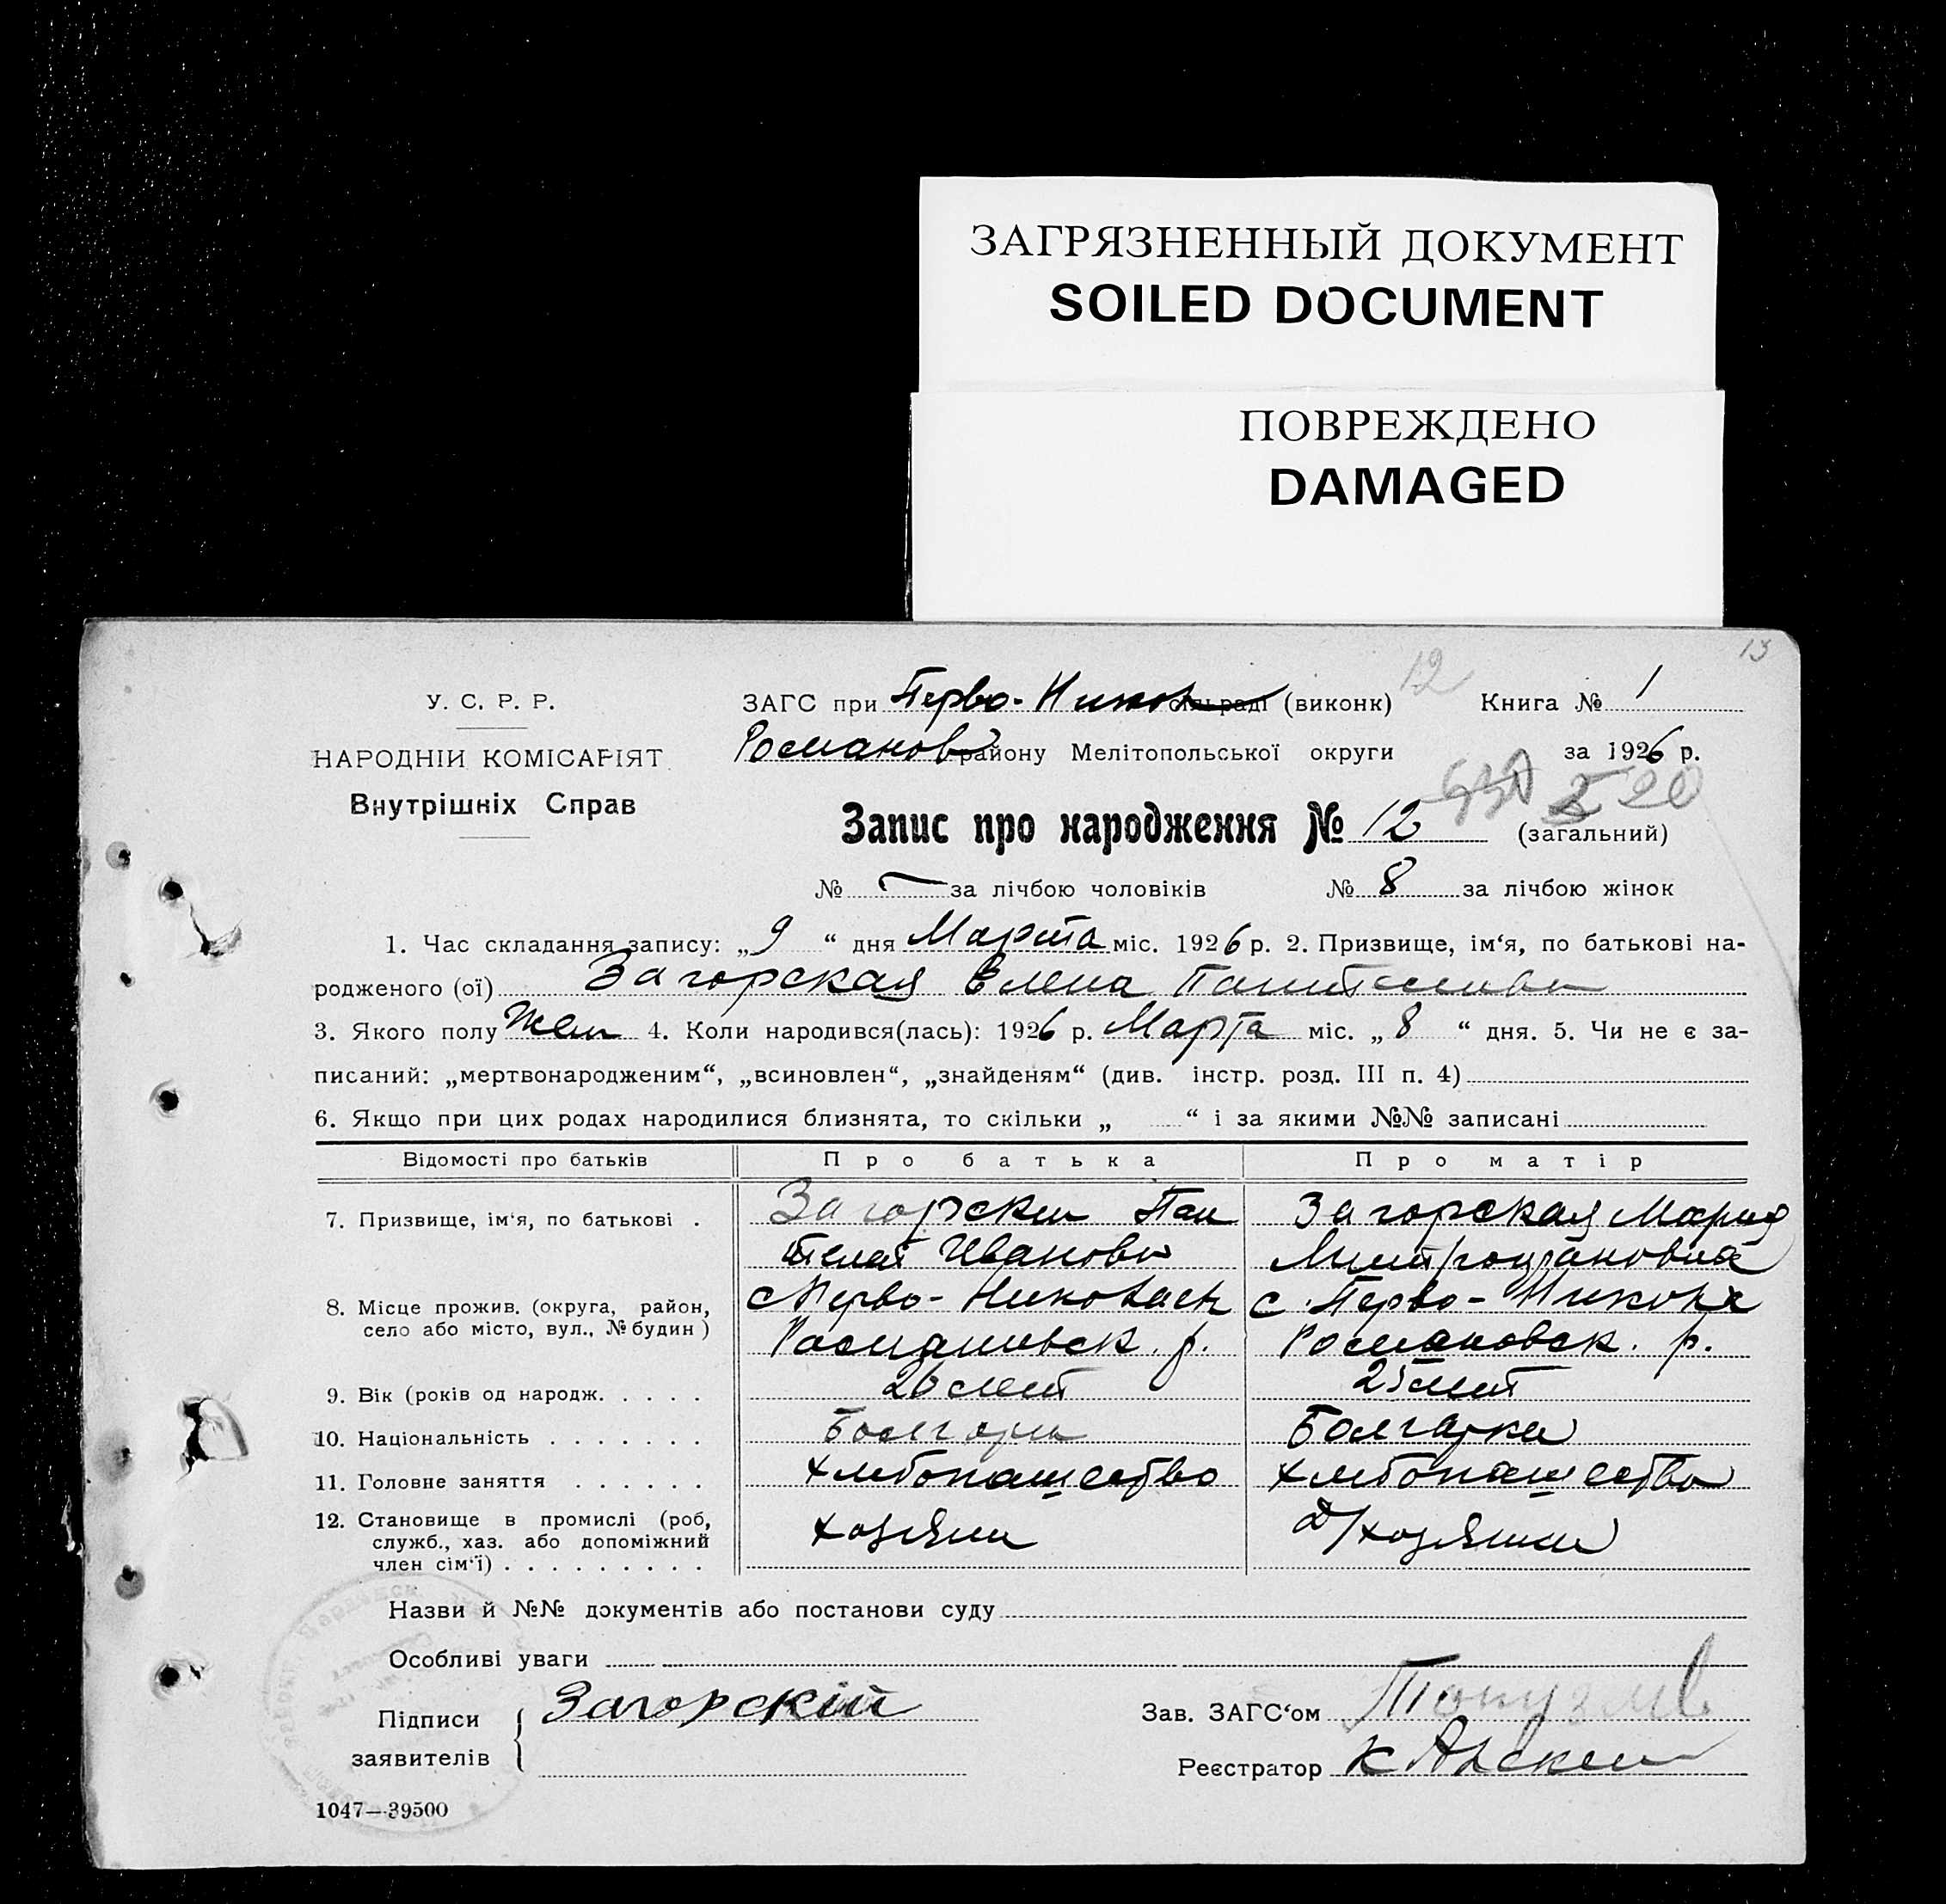 ЗАГРЯЗНЕННЫЙ ДОКУМЕНТ
SOILED DOCUMENT
ПОВРЕЖДЕНО
DAMAGED
13
12
У. С. Р. Р.
НАРОДНІЙ КОМІСАРІЯТ
Внутрішніх Справ
ЗАГС при Перво-Никол сільраді (виконк) Книга № 1
Романов району Мелітопольської округи за 1926 р.
20
Запис про народження № 12 (загальний)
№ — за лічбою чоловіків № 8 за лічбою жінок
1. Час складання запису: „9“ дня Марта міс. 1926 р. 2. Призвище, ім‘я, по батькові на-
родженого (ої) Загорская Елена
3. Якого полу Жен 4. Коли народився(лась): 1926 р. Марта міс. „8“ дня. 5. Чи не є за-
писаний: „мертвонародженим“, „всиновлен“, „знайденям“ (див. інстр. розд. III п. 4)
6. Якщо при цих родах народилися близнята, то скільки „ “ і за якими №№ записані
Відомості про батьків Про батька Про матір
7. Призвище, ім‘я, по батькові . Загорский Пан Загорская Мария
телей Иванов Митрофановна
8. Місце прожив. (округа, район, с Перво-Николаевк с. Перво-Никол
село або місто, вул., № будин) Романовск. р. Романовск. р.
9. Вік (років од народж. . . . . 26 лет 25 лет
10. Національність . . . . . . . Болгарин Болгарка
11. Головне заняття . . . . . . Хлебопашество Хлебопашество
12. Становище в промислі (роб, хозяин д/хозяйка
служб., хаз. або допоміжний
член сім‘ї) . . . . . . . . .
Назви й №№ документів або постанови суду
Особливі уваги
Підписи Загорскій Зав. ЗАГС‘ом
заявителів Реєстратор
1047—39500